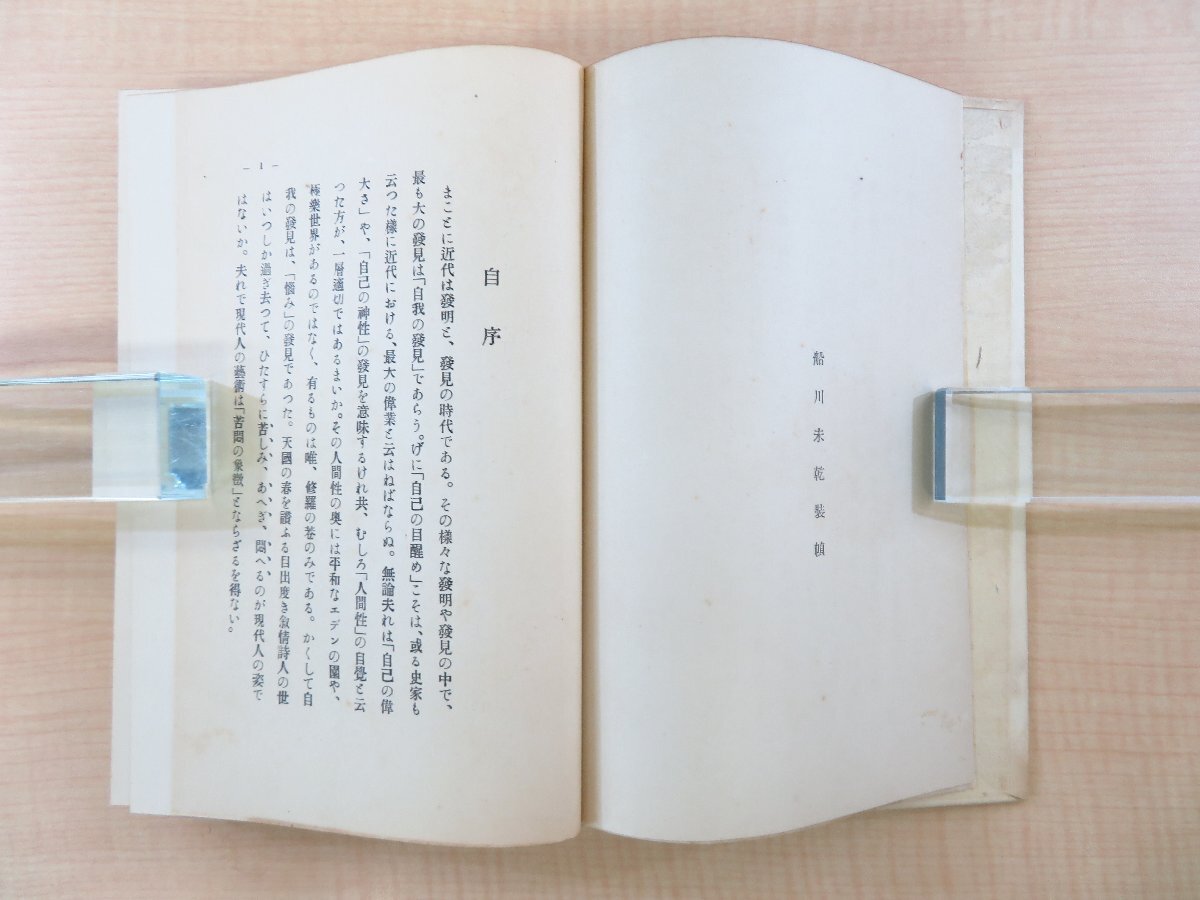 船川未乾裝幀
自序
まことに近代は發明と、發見の時代である。その樣々な發明や發見の中で、
最も大の發見は「自我の發見」であらう。げに「自己の目醒め」こそは、或る史家も
云つた樣に近代における、最大の偉業と云はねばならぬ。無論夫れは「自己の偉
大さ」や、「自己の神性」の發見を意味するけれ共、むしろ「人間性」の自覺と云
つた方が、一層適切ではあるまいか。その人間性の奧には平和なエデンの園や、
極樂世界があるのではなく、有るものは唯、修羅の巷のみである。かくして自
我の發見は、「惱み」の發見であつた。天國の春を讚ふる目出度き敍情詩人の世
はいつしか過ぎ去つて、ひたすらに苦しみ、あへぎ、悶へるのが現代人の姿で
はないか。夫れで現代人の藝術は「苦悶の象徴」とならざるを得ない。
— 1 —